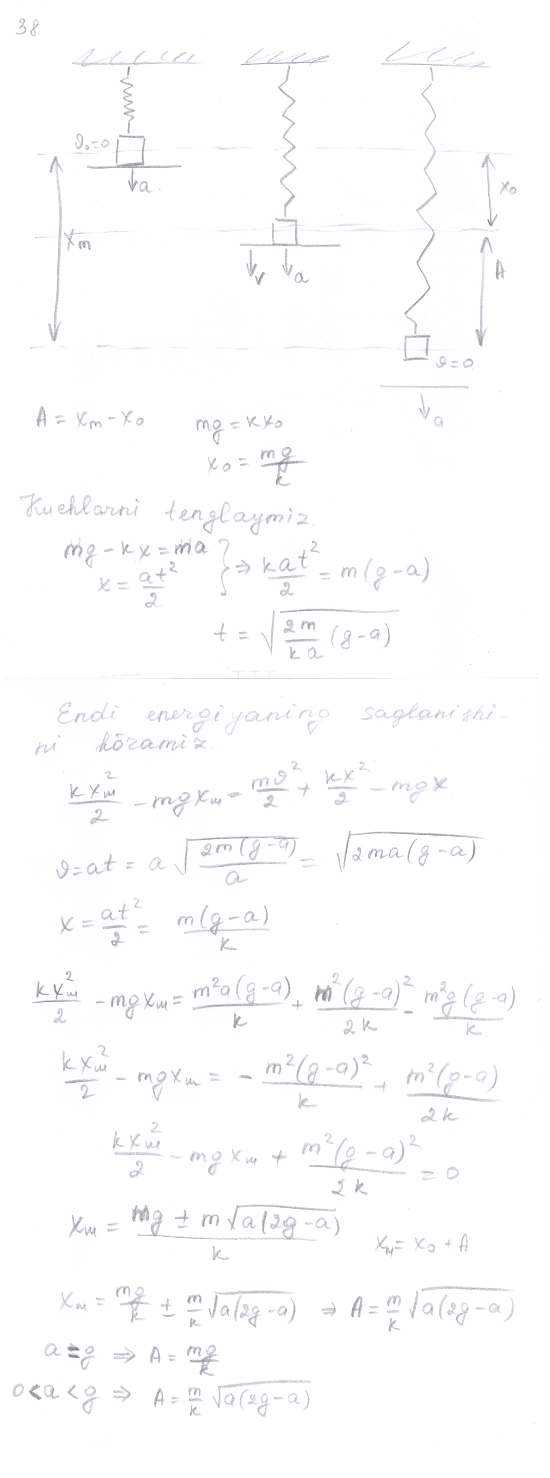 38.
ϑ₀=0
a
x_m
v a
x₀
A
ϑ=0
a
A = x_m - x₀    mg = kx₀
x₀ = mg/k
Kuchlarni tenglaymiz.
mg - kx = ma
x = at²/2 } ⇒ kat²/2 = m(g-a)
t = √(2m/ka (g-a))
Endi energiyaning saqlanishi-
ni köramiz.
kx_m²/2 - mgx_m = mϑ²/2 + kx²/2 - mgx
ϑ=at = a √(2m(g-a)/a) = √(2ma(g-a))
x = at²/2 = m(g-a)/k
kx_m²/2 - mgx_m = m²a(g-a)/k + m²(g-a)²/2k - m²g(g-a)/k
kx_m²/2 - mgx_m = - m²(g-a)²/k + m²(g-a)/2k
kx_m²/2 - mgx_m + m²(g-a)²/2k = 0
x_m = (mg ± m√(a(2g-a)))/k    x_m = x₀ + A
x_m = mg/k ± m/k √(a(2g-a)) ⇒ A = m/k √(a(2g-a))
a = g ⇒ A = mg/k
0<a<g ⇒ A = m/k √(a(2g-a))